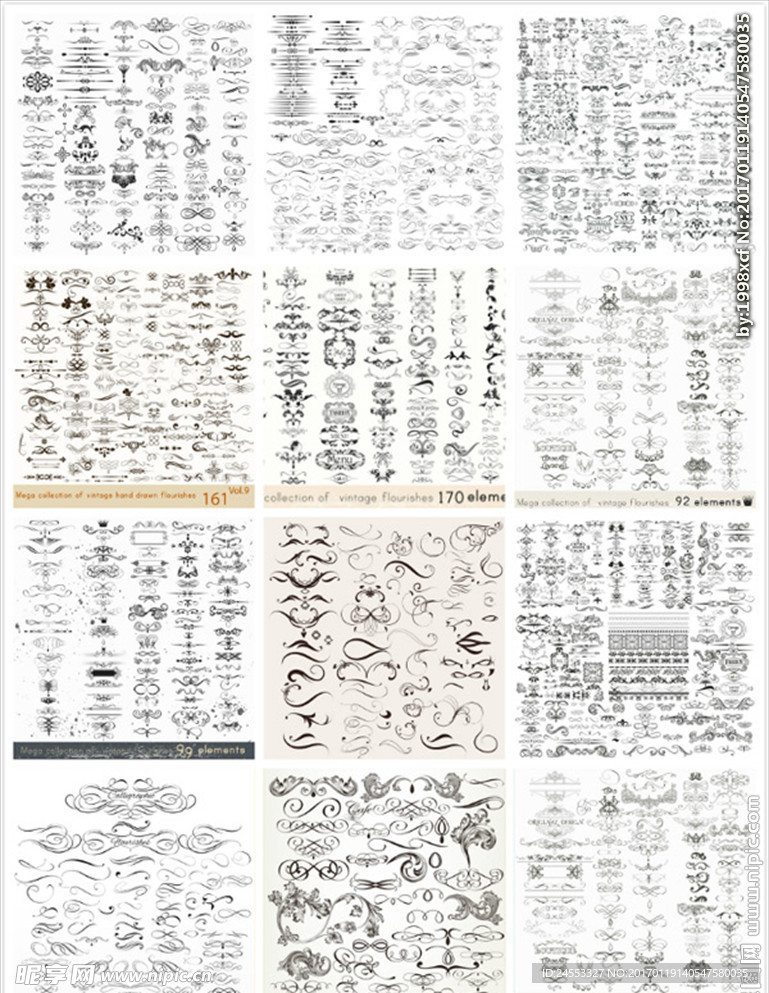 by:1998xcf No:20170119140547580035
ORIGINAL DESIGN
Menu
Mega collection of vintage hand drawn flourishes 161 Vol.9
collection of vintage flourishes 170 eleme
Mega collection of vintage flourishes 92 elements
Mega collection of vintage flourishes 99 elements
Calligraphic
flourishes
Cafe
ORIGINAL DESIGN
www.nipic.com
昵享网 www.nipic.cn
ID:24553327 NO:20170119140547580035